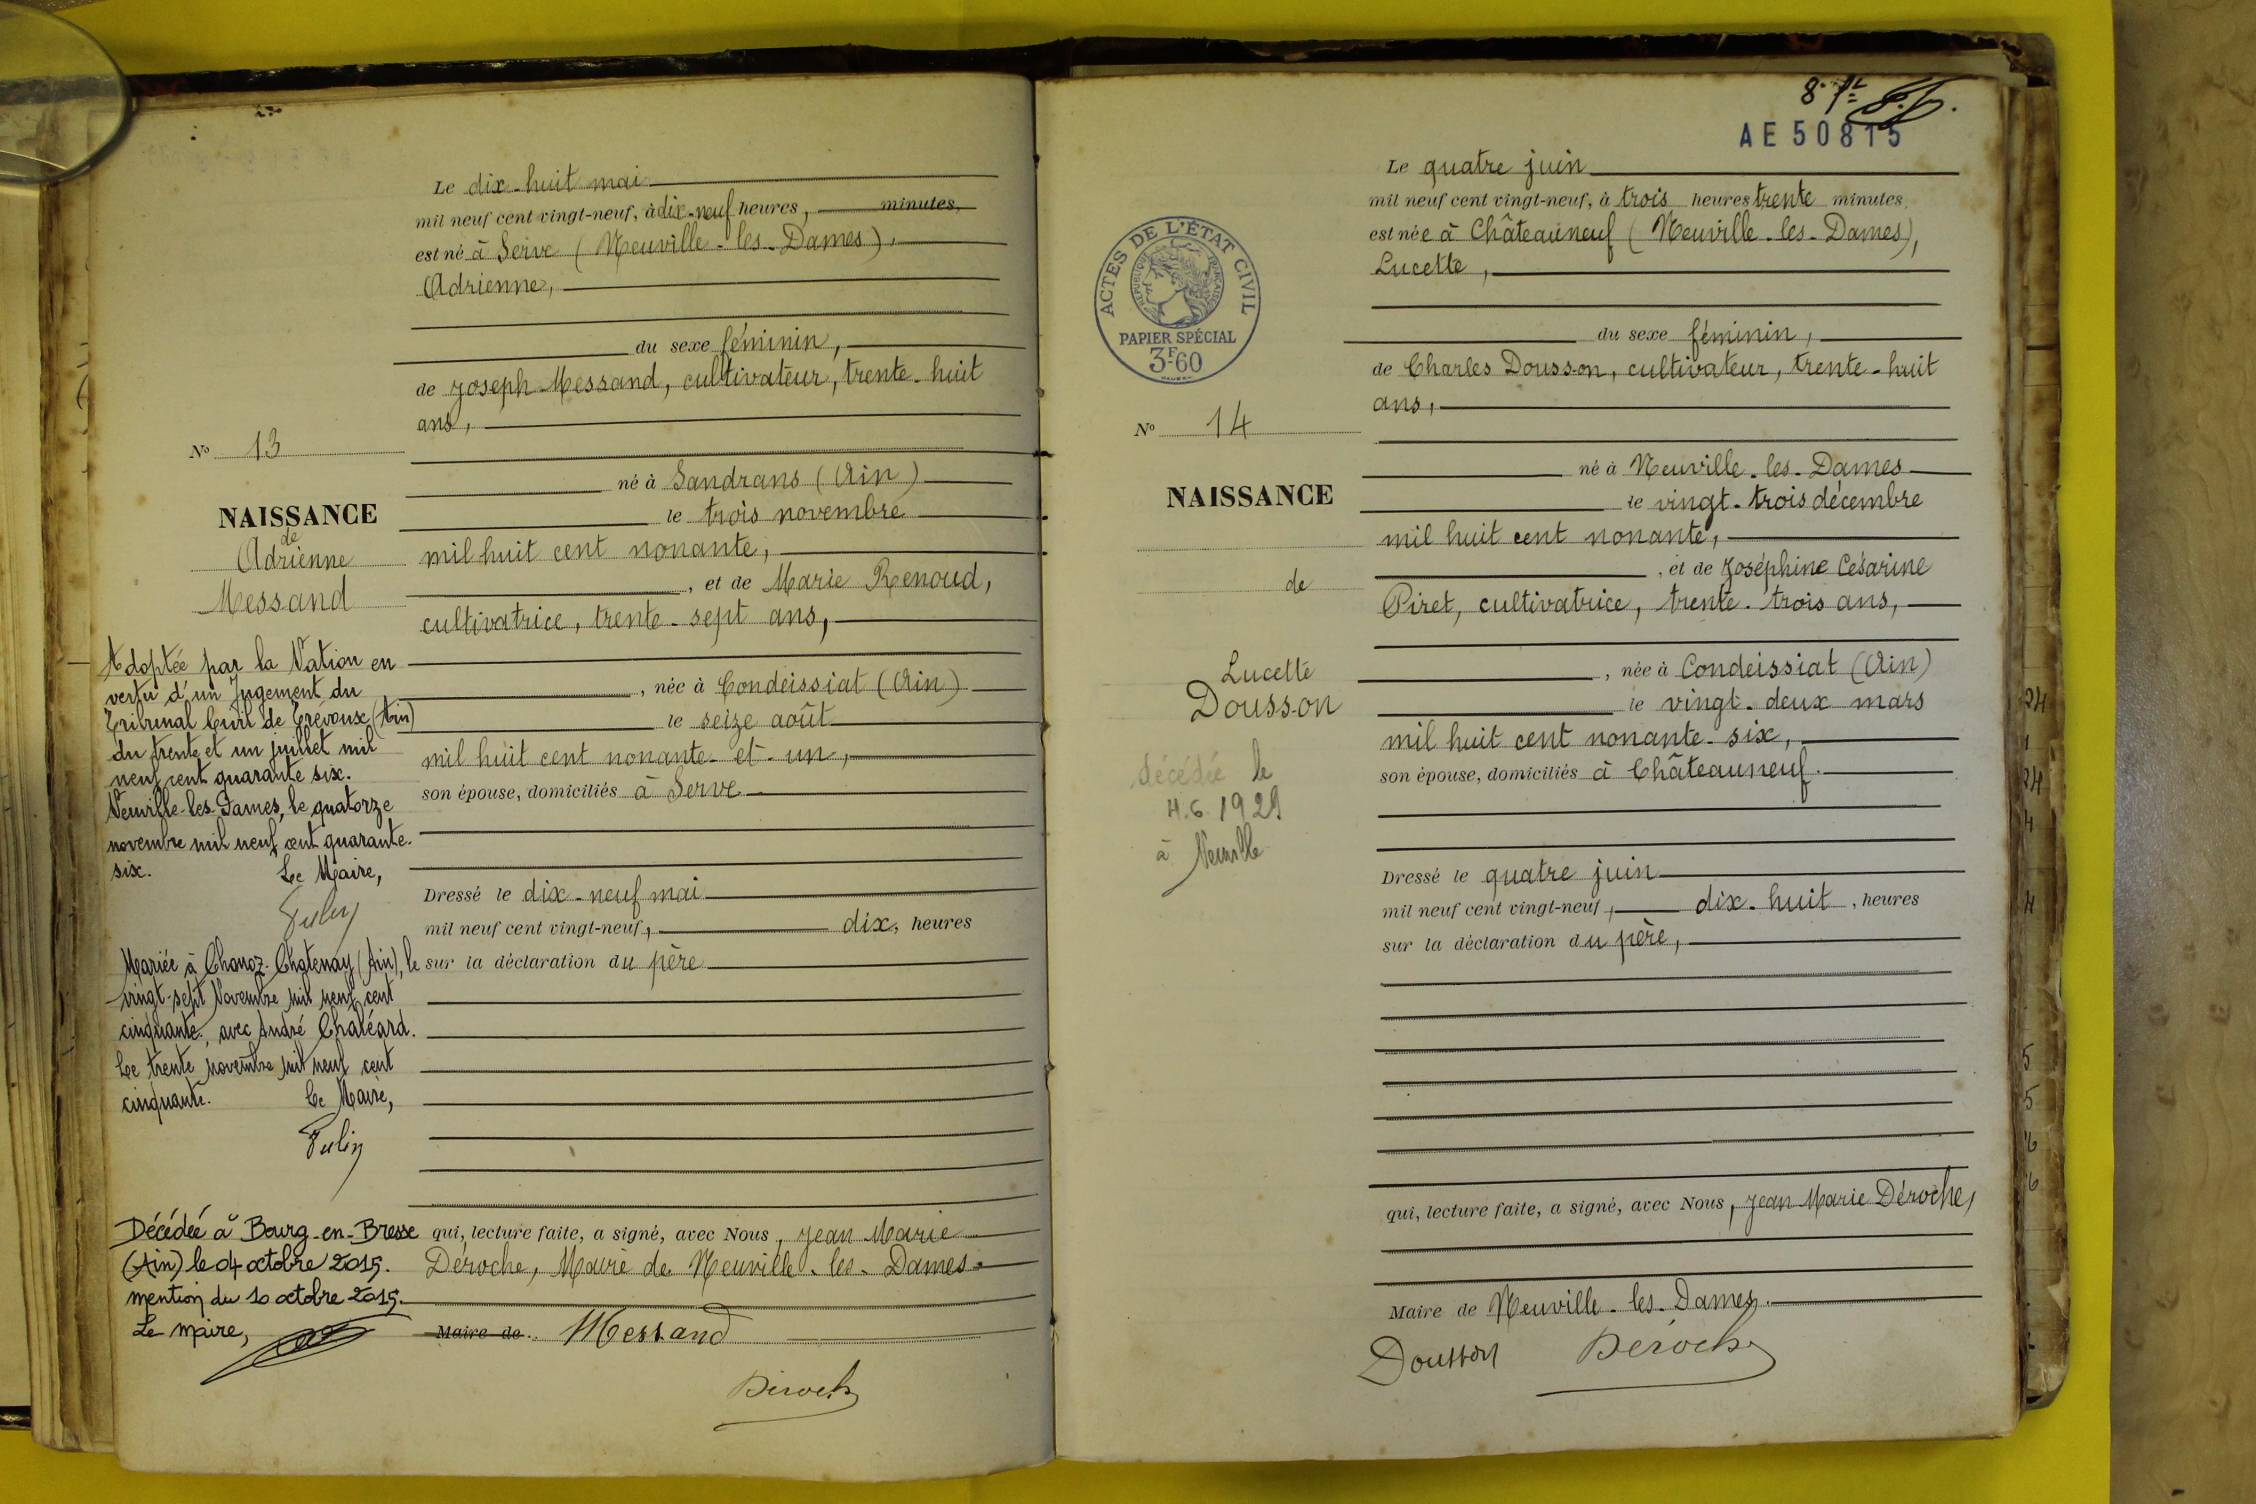 Le dix-huit mai
mil neuf cent vingt-neuf, à dix-neuf heures, minutes,
est né à Serve (Neuville-les-Dames),
Adrienne,
du sexe féminin,
de Joseph Messand, cultivateur, trente-huit
ans,
né à Sandrans (Ain)
le trois novembre
mil huit cent nonante,
, et de Marie Renoud,
cultivatrice, trente-sept ans,
, née à Condeissiat (Ain)
le seize août
mil huit cent nonante-et-un,
son épouse, domiciliés à Serve
Dressé le dix-neuf mai
mil neuf cent vingt-neuf, dix, heures
sur la déclaration du père
qui, lecture faite, a signé, avec Nous, Jean Marie
Déroche, Maire de Neuville-les-Dames.
Maire de Messand
Déroche
No 13
NAISSANCE
de
Adrienne
Messand
Adoptée par la Nation en
vertu d'un Jugement du
Tribunal Civil de Trévoux (Ain)
du trente et un juillet mil
neuf cent quarante six.
Neuville-les-Dames, le quatorze
novembre mil neuf cent quarante.
six. Le Maire,
Mariée à Chanoz-Chatenay (Ain), le
vingt-sept Novembre mil neuf cent
cinquante, avec André Chaléard.
Le trente novembre mil neuf cent
cinquante. Le Maire,
Décédée à Bourg-en-Bresse
(Ain) le 04 octobre 2015.
mention du 10 octobre 2015.
Le maire,
AE 50815
ACTES DE L'ÉTAT CIVIL
RÉPUBLIQUE FRANÇAISE
PAPIER SPÉCIAL
3F60
Le quatre juin
mil neuf cent vingt-neuf, à trois heures trente minutes,
est née à Châteauneuf (Neuville-les-Dames),
Lucette,
du sexe féminin,
de Charles Dousson, cultivateur, trente-huit
ans,
né à Neuville-les-Dames
le vingt-trois décembre
mil huit cent nonante,
, et de Joséphine Césarine
Piret, cultivatrice, trente-trois ans,
, née à Condeissiat (Ain)
le vingt-deux mars
mil huit cent nonante-six,
son épouse, domiciliés à Châteauneuf.
Dressé le quatre juin
mil neuf cent vingt-neuf, dix-huit, heures
sur la déclaration du père,
qui, lecture faite, a signé, avec Nous, Jean Marie Déroche,
Maire de Neuville-les-Dames.
Dousson Déroche
No 14
NAISSANCE
de
Lucette
Dousson
décédée le
4.6.1929
à Neuville
24
1
24
4
4
5
5
6
6